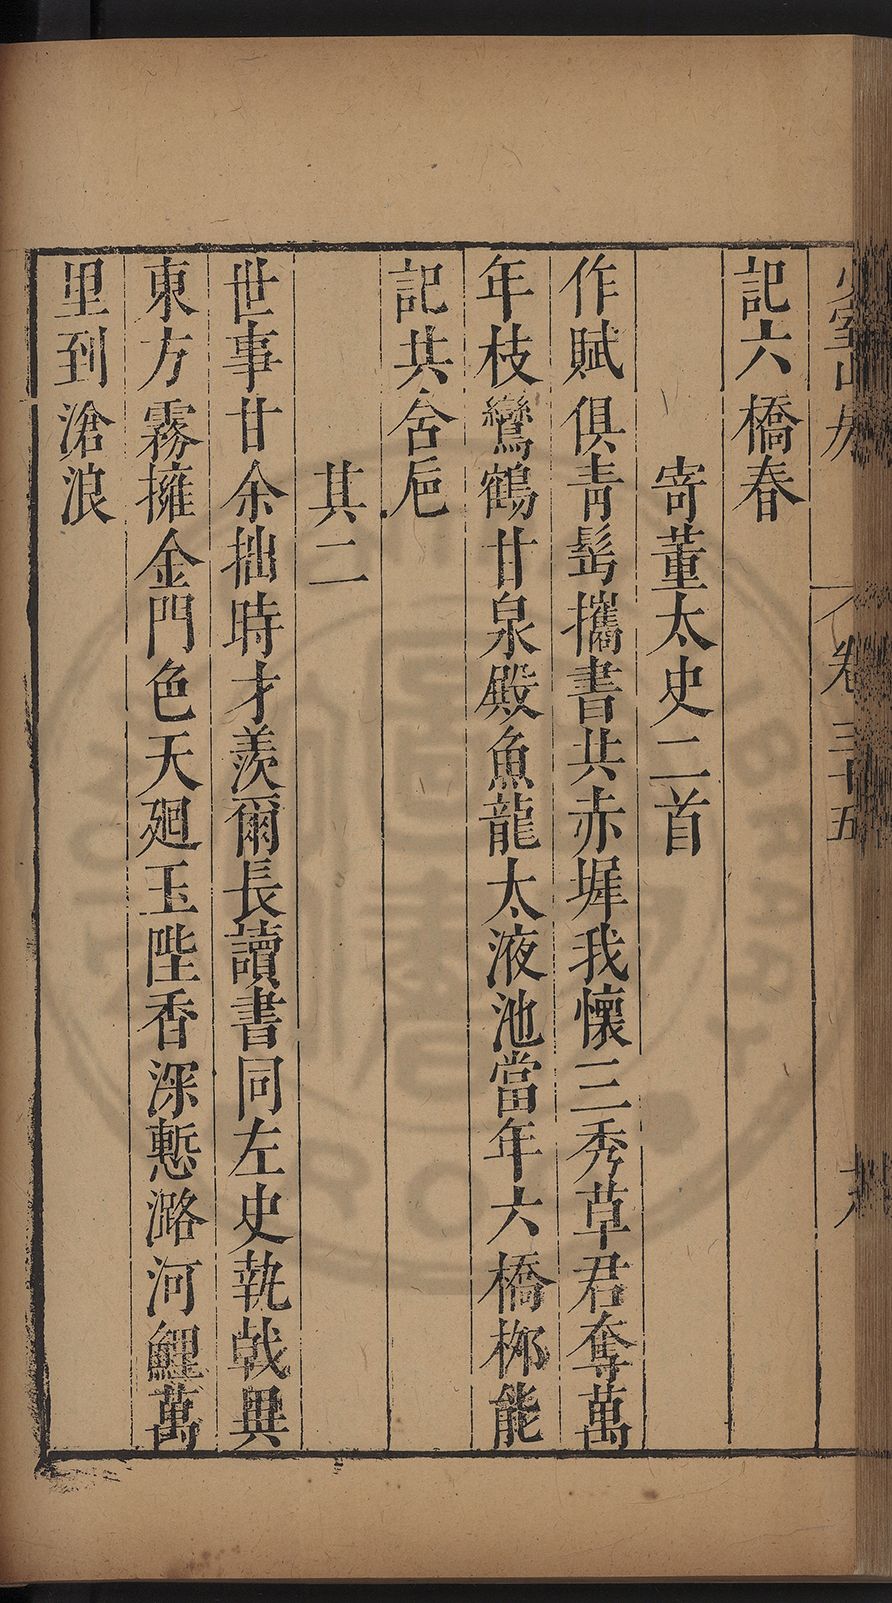 卷三十五
記六橋春
寄董太史二首
作賦俱青髩攜書共赤墀我懷三秀草君奪萬
年枝鸞鶴甘泉殿魚龍太液池當年六橋栁能
記共含巵
其二
世事甘余拙時才羨爾長讀書同左史執戟異
東方霧擁金門色天廻玉陛香深慙潞河鯉萬
里到滄浪